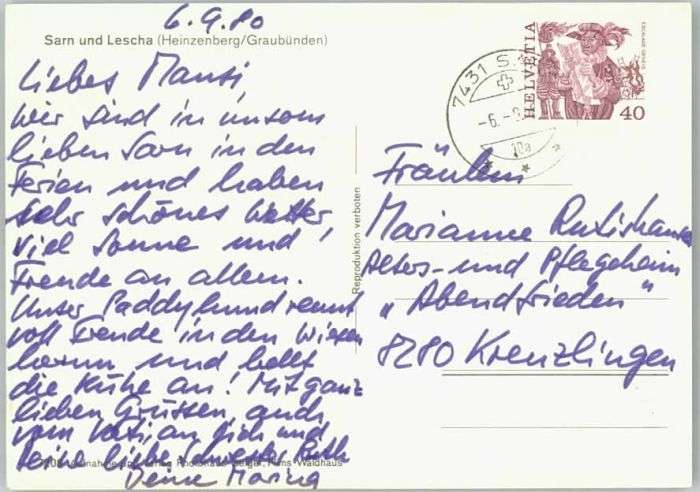 6.9.80
Sarn und Lescha (Heinzenberg/Graubünden)
Liebes Mausi,
Wir sind in unsern
lieben Sarn in den
Ferien und haben
sehr schönes Wetter,
viel Sonne und
Freude an allem.
Unser Paddyhund rennt
voll Freude in den Wiesen
herum und bellt
die Kühe an! Mit ganz
lieben Grüssen, auch
vom Vati, an dich und
deine liebe Schwester Ruth
Deine Marina
Reproduktion verboten
7431 S
-6.-9
10a
HELVETIA
40
ESCALADE GENEVE
Fräulein
Marianne Rutishauser
Alters- und Pflegeheim
„Abendfrieden"
8280 Kreuzlingen